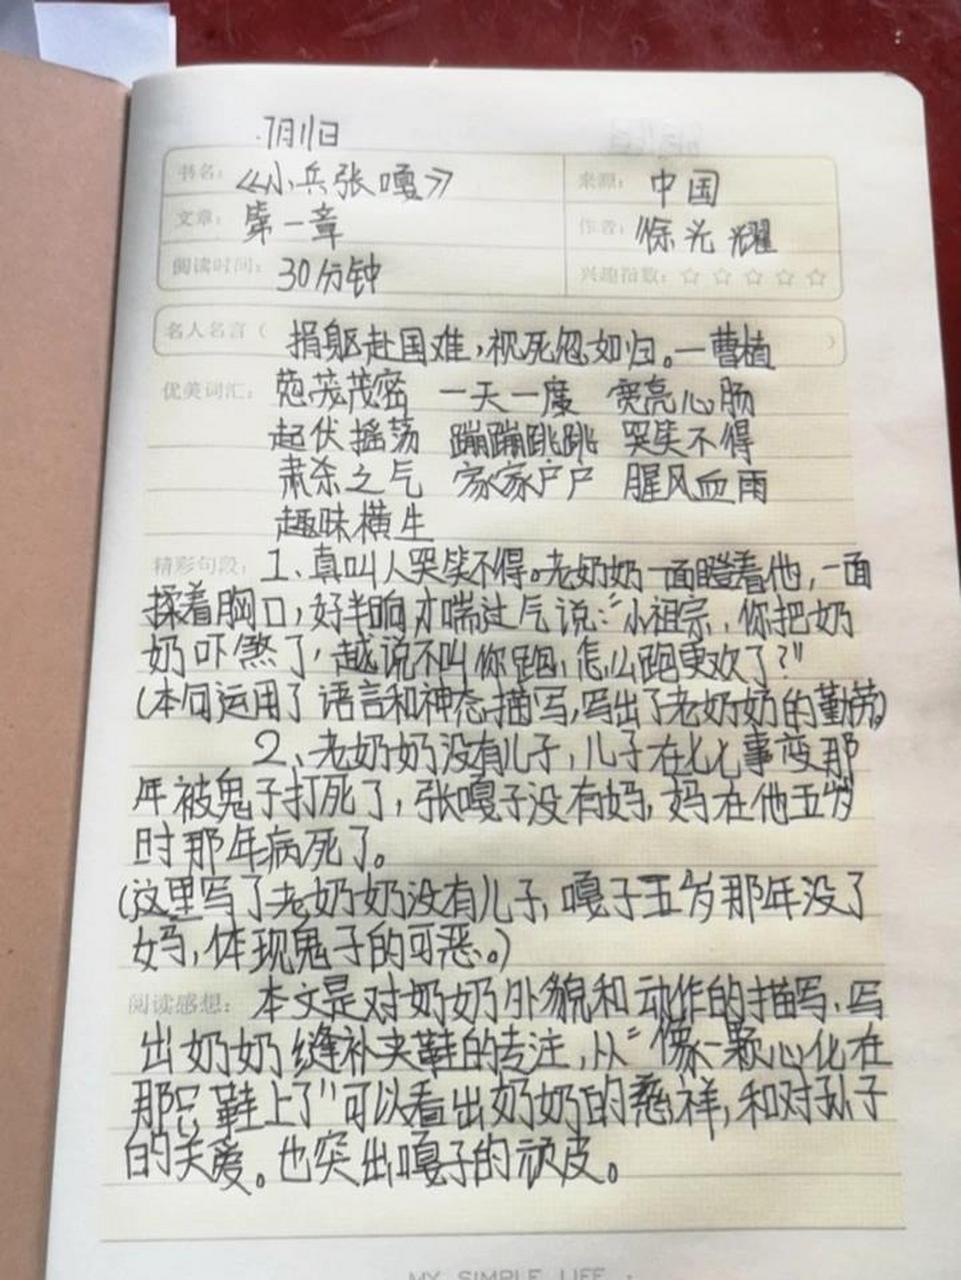 7月11日
书名：《小兵张嘎》 来源：中国
文章：第一章 作者：徐光耀
阅读时间：30分钟 兴趣指数：☆☆☆☆☆
名人名言（捐躯赴国难，视死忽如归。—曹植）
优美词汇：葱茂茂密 一天一度 宽亮心肠
起伏摇荡 蹦蹦跳跳 哭笑不得
肃杀之气 家家户户 腥风血雨
趣味横生
精彩句段：1、真叫人哭笑不得。老奶奶一面瞪着他，一面
揉着胸口，好半晌才喘过气说："小祖宗，你把奶
奶吓煞了，越说不叫你跑，怎么跑更欢了？"
(本句运用了语言和神态描写，写出了老奶奶的勤劳)
2、老奶奶没有儿子，儿子在七七事变那
年被鬼子打死了，张嘎子没有妈，妈在他五岁
时那年病死了。
(这里写了老奶奶没有儿子，嘎子五岁那年没了
妈，体现鬼子的可恶。)
阅读感想：本文是对奶奶外貌和动作的描写，写
出奶奶缝补夹鞋的专注，从"像一颗心化在
那只鞋上了"可以看出奶奶的慈祥，和对孙子
的关爱。也突出嘎子的顽皮。
MY SIMPLE LIFE